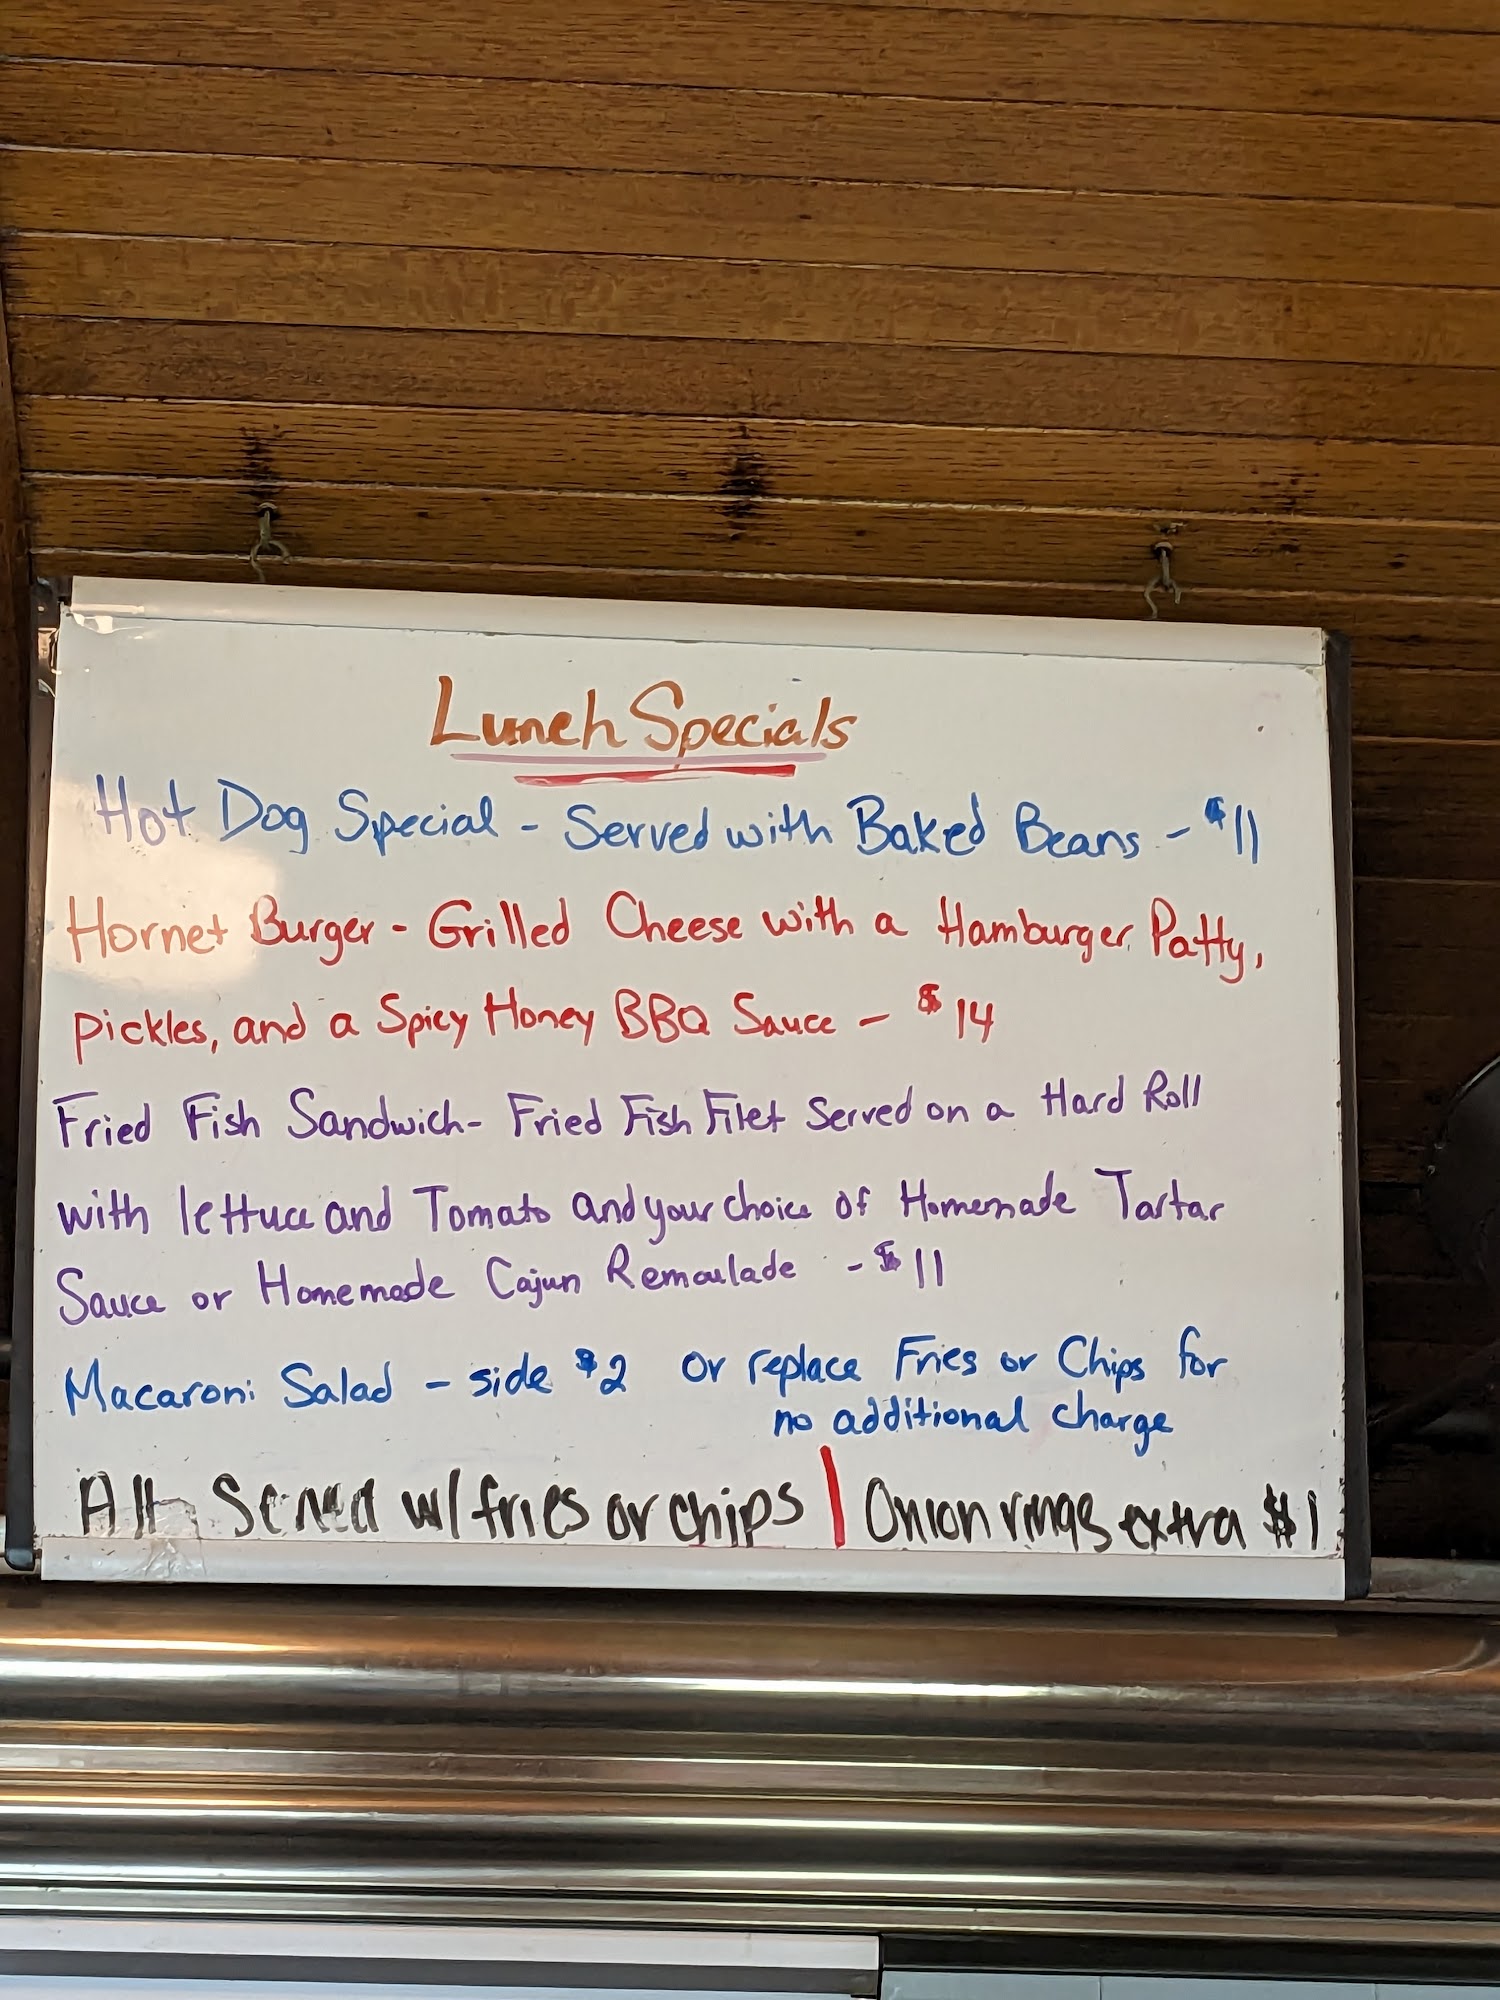 Lunch Specials
Hot Dog Special - Served with Baked Beans - $11
Hornet Burger - Grilled Cheese with a Hamburger Patty,
pickles, and a Spicy Honey BBQ Sauce - $14
Fried Fish Sandwich - Fried Fish Filet Served on a Hard Roll
with lettuce and Tomato and your choice of Homemade Tartar
Sauce or Homemade Cajun Remoulade - $11
Macaroni Salad - side $2 or replace Fries or Chips for
no additional charge
All Served w/ fries or chips | Onion rings extra $1